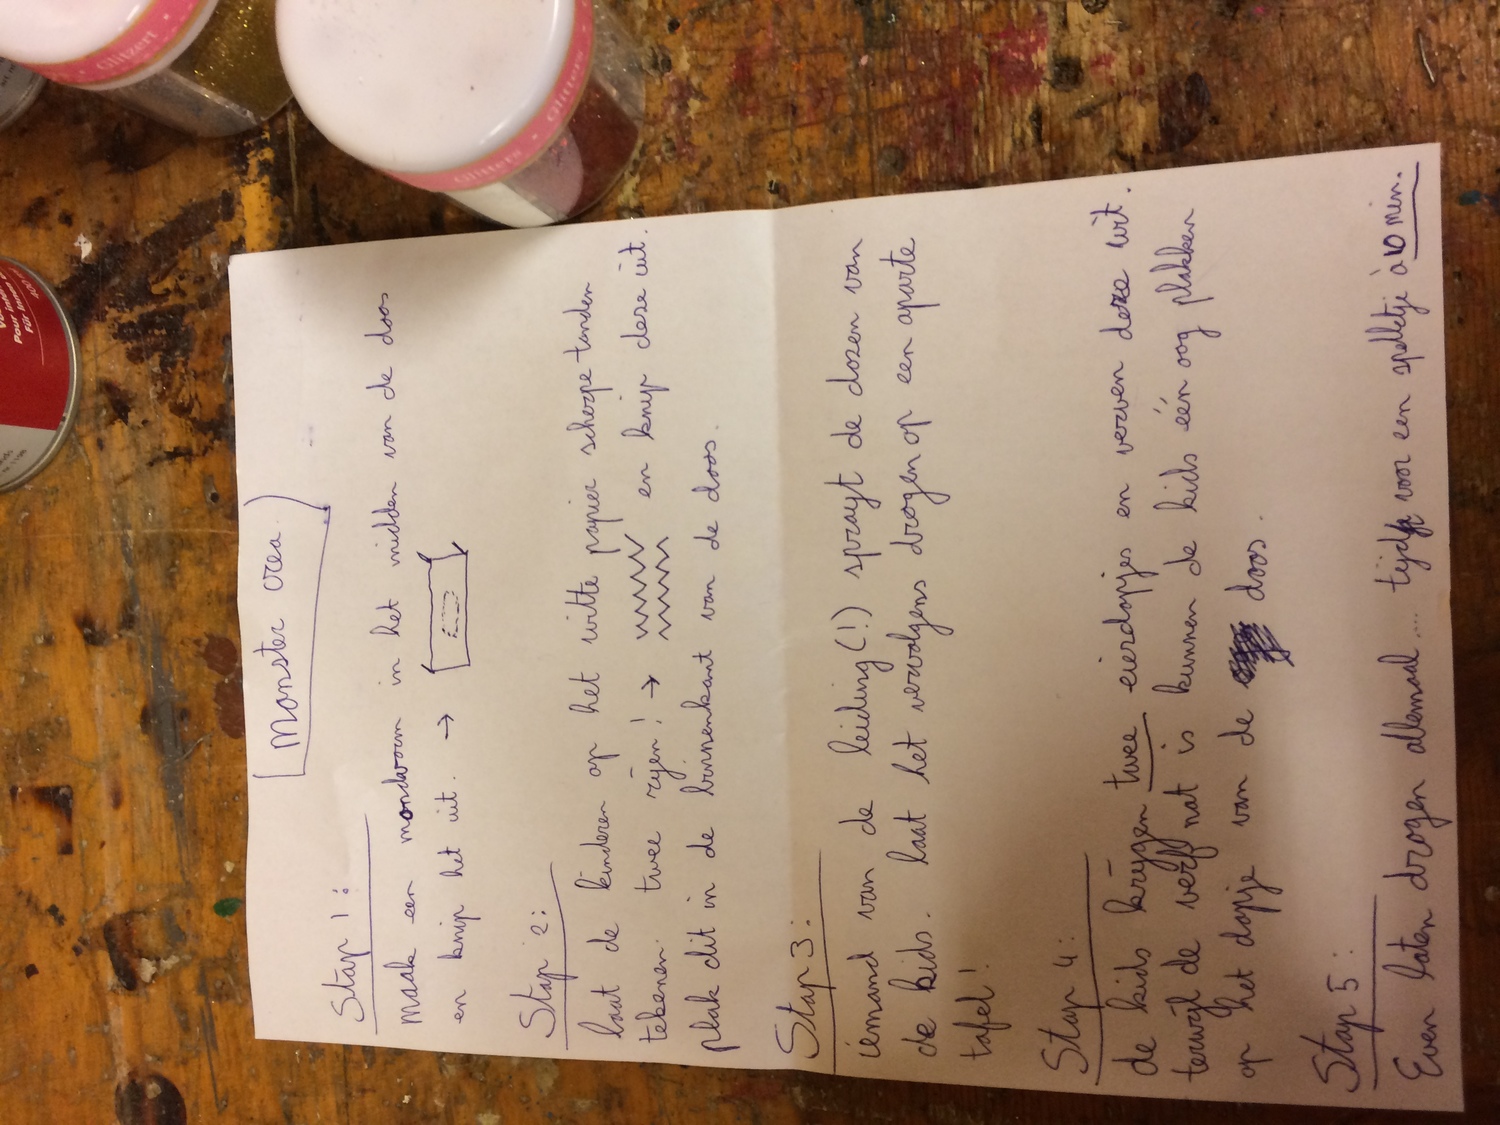 Monster crea
Stap 1:
maak een mondvorm in het midden van de doos
en knip het uit. →
Stap 2:
laat de kinderen op het witte papier scherpe tanden
tekenen. twee rijen! → en knip deze uit.
plak dit in de binnenkant van de doos.
Stap 3:
iemand van de leiding (!) sprayt de dozen van
de kids. laat het vervolgens drogen op een aparte
tafel!
Stap 4:
de kids krijgen twee eierdopjes en verven deze wit.
terwijl de verf nat is kunnen de kids één oog plakken
op het dopje van de doos.
Stap 5:
Even laten drogen allemaal.... tijd voor een spelletje à 10 min.
Glitzert
Glitters • Glitters
Pour
Für Innen